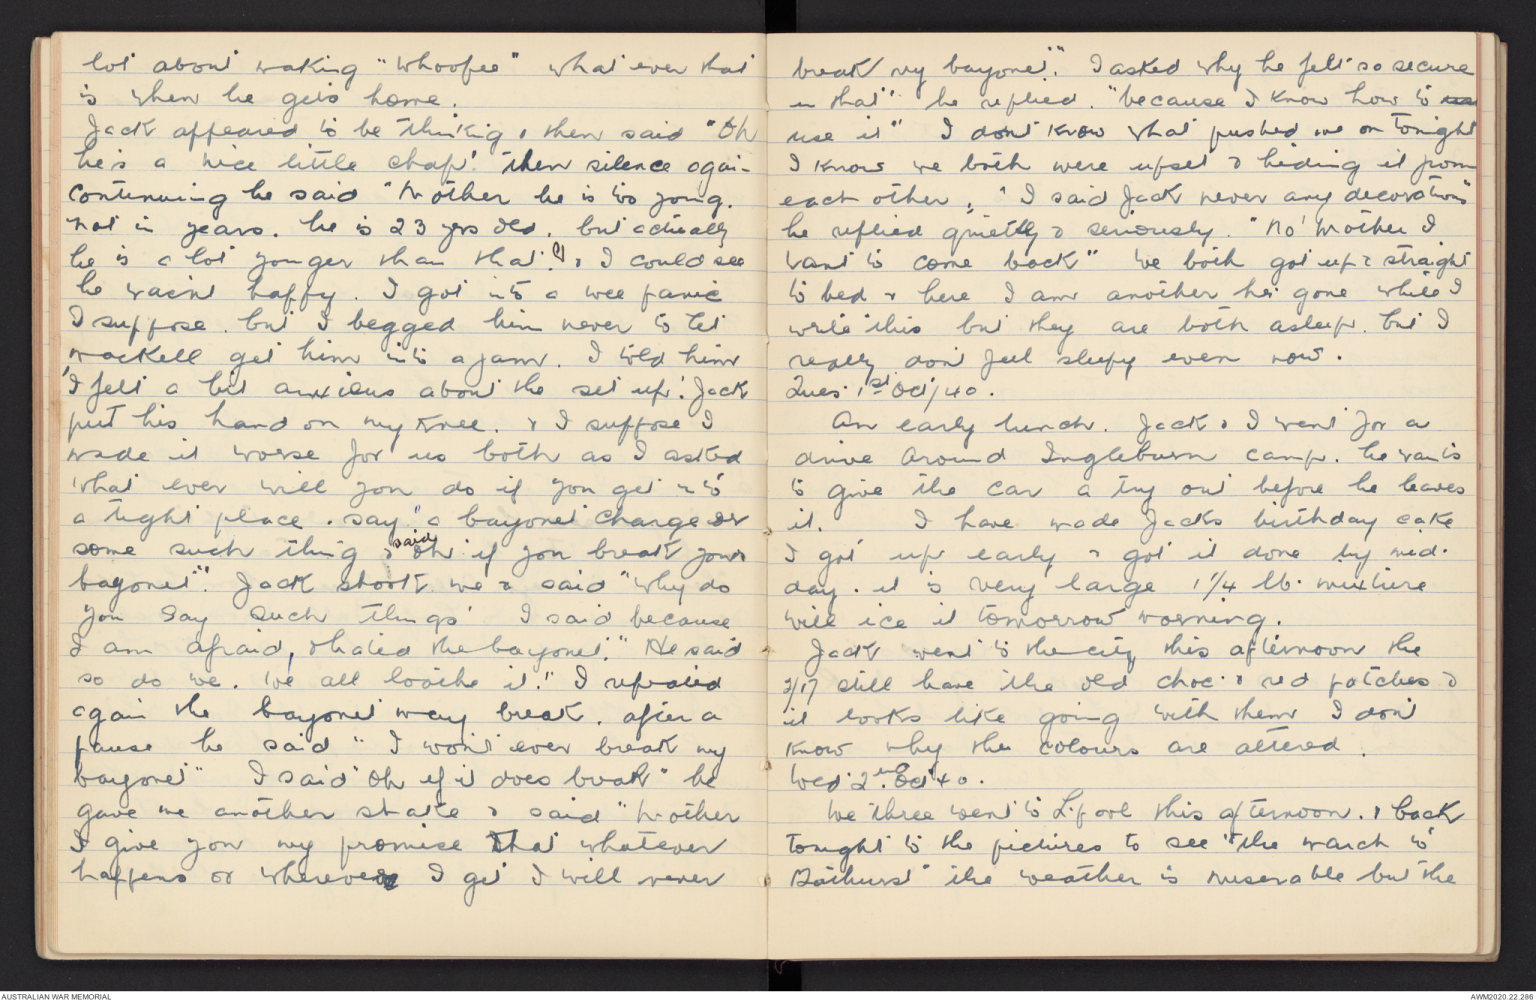 lot about making "whoopee" what ever that
is when he gets home.
Jack appeared to be thinking & then said "Oh
he's a nice little chap". then silence again
continuing he said "Mother he is too young.
not in years. he is 23 yrs old. but actually
he is a lot younger than that." & I could see
he wasn't happy. I got into a wee panic
I suppose. but I begged him never to let
Mackell get him into a jam. I told him
'I felt a bit anxious about the set up'. Jack
put his hand on my knee. & I suppose I
made it worse for us both as I asked
'what ever will you do if you get into
a tight place. say "a bayonet charge or
some such thing & said oh if you break your
bayonet". Jack shook me & said "why do
you say such things' I said because
I am afraid, & hated the bayonet." He said
so do we. 'we all loathe it." I repeated
again the bayonet may break. after a
pause he said "I won't ever break my
bayonet" I said oh if it does break" he
gave me another shake & said "Mother
I give you my promise That whatever
happens or wherever I get I will never
break my bayonet". I asked why he felt so secure
in that" he replied. "because I know how to
use it" I don't know what pushed me on tonight
I know we both were upset & hiding it from
each other. "I said Jack never any decorations"
he replied quietly & seriously. "No' Mother I
want to come back" We both got up & straight
to bed & here I am another hr. gone while I
write this but they are both asleep. but I
really don't feel sleepy even now.
Tues. 1st Oct/40.
An early lunch. Jack & I went for a
drive around Ingleburn camp. he wants
to give the car a try out before he leaves
it. I have made Jacks birthday cake
I got up early & got it done by mid.
day. it is very large 1 1/4 lb. mixture
will ice it tomorrow morning.
Jack went to the city this afternoon the
2/17 still have the old choc. & red patches &
it looks like going with them I don't
know why the colours are altered.
Wed. 2nd Oct 40.
We three went to L.pool this afternoon. & back
tonight to the pictures to see "the march to
Bathurst" the weather is miserable but the
AUSTRALIAN WAR MEMORIAL
AWM2020.22.286